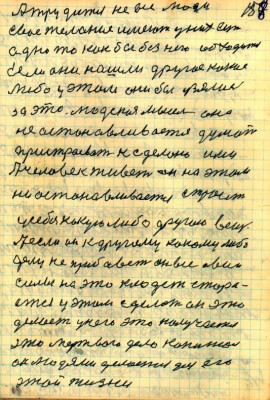 А трудится не все люди 158
свое желание имеют у них есть
одно то как бы без него обходится
Если они нашли другое какое
либо у этом они бы взялись
за это. людская мысль она
не останавливается думать
пристраивать к сделать ими
А человек живет он на этом
не останавливается строит
у себя какую либо другую вещ.
А если он к другому какому либо
делу не прибавет он все свои
силы на это кладет стара-
ется у этом сделать он это
делает у него это получается
это мертвого дело капитал
он людями делается для его
этой жизни